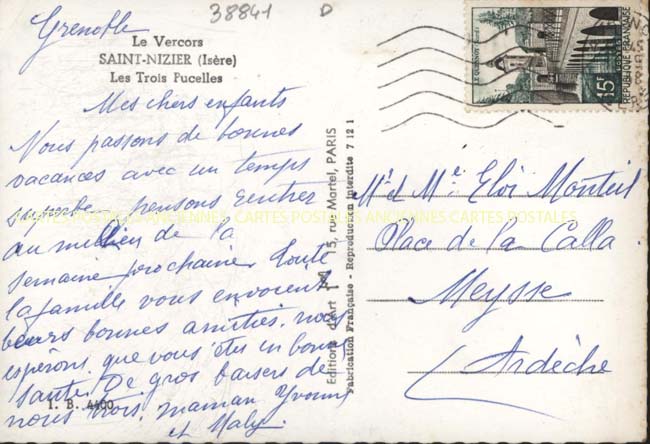 38841 D
Grenoble
Le Vercors
SAINT-NIZIER (Isère)
Les Trois Pucelles
Mes chers enfants
Nous passons de bonnes
vacances avec un temps
superbe pensons rentrer
au milieu de la
semaine prochaine toute
la famille vous envoient
leurs bonnes amitiés. nous
espérons que vous êtes en bonne
santé. De gros baisers de
nous trois, maman Yvonne
et Maly
I. B. 4400
Editions d'Art 15, rue Martel, PARIS
Fabrication Française - Reproduction Interdite 7 12 1
LE QUESNOY (NORD)
15F
REPUBLIQUE FRANÇAISE
Mr et Me Eloi Monteil
Place de la Calla
Meysse
Ardèche
CARTES POSTALES ANCIENNES CARTES POSTALES ANCIENNES CARTES POSTALES